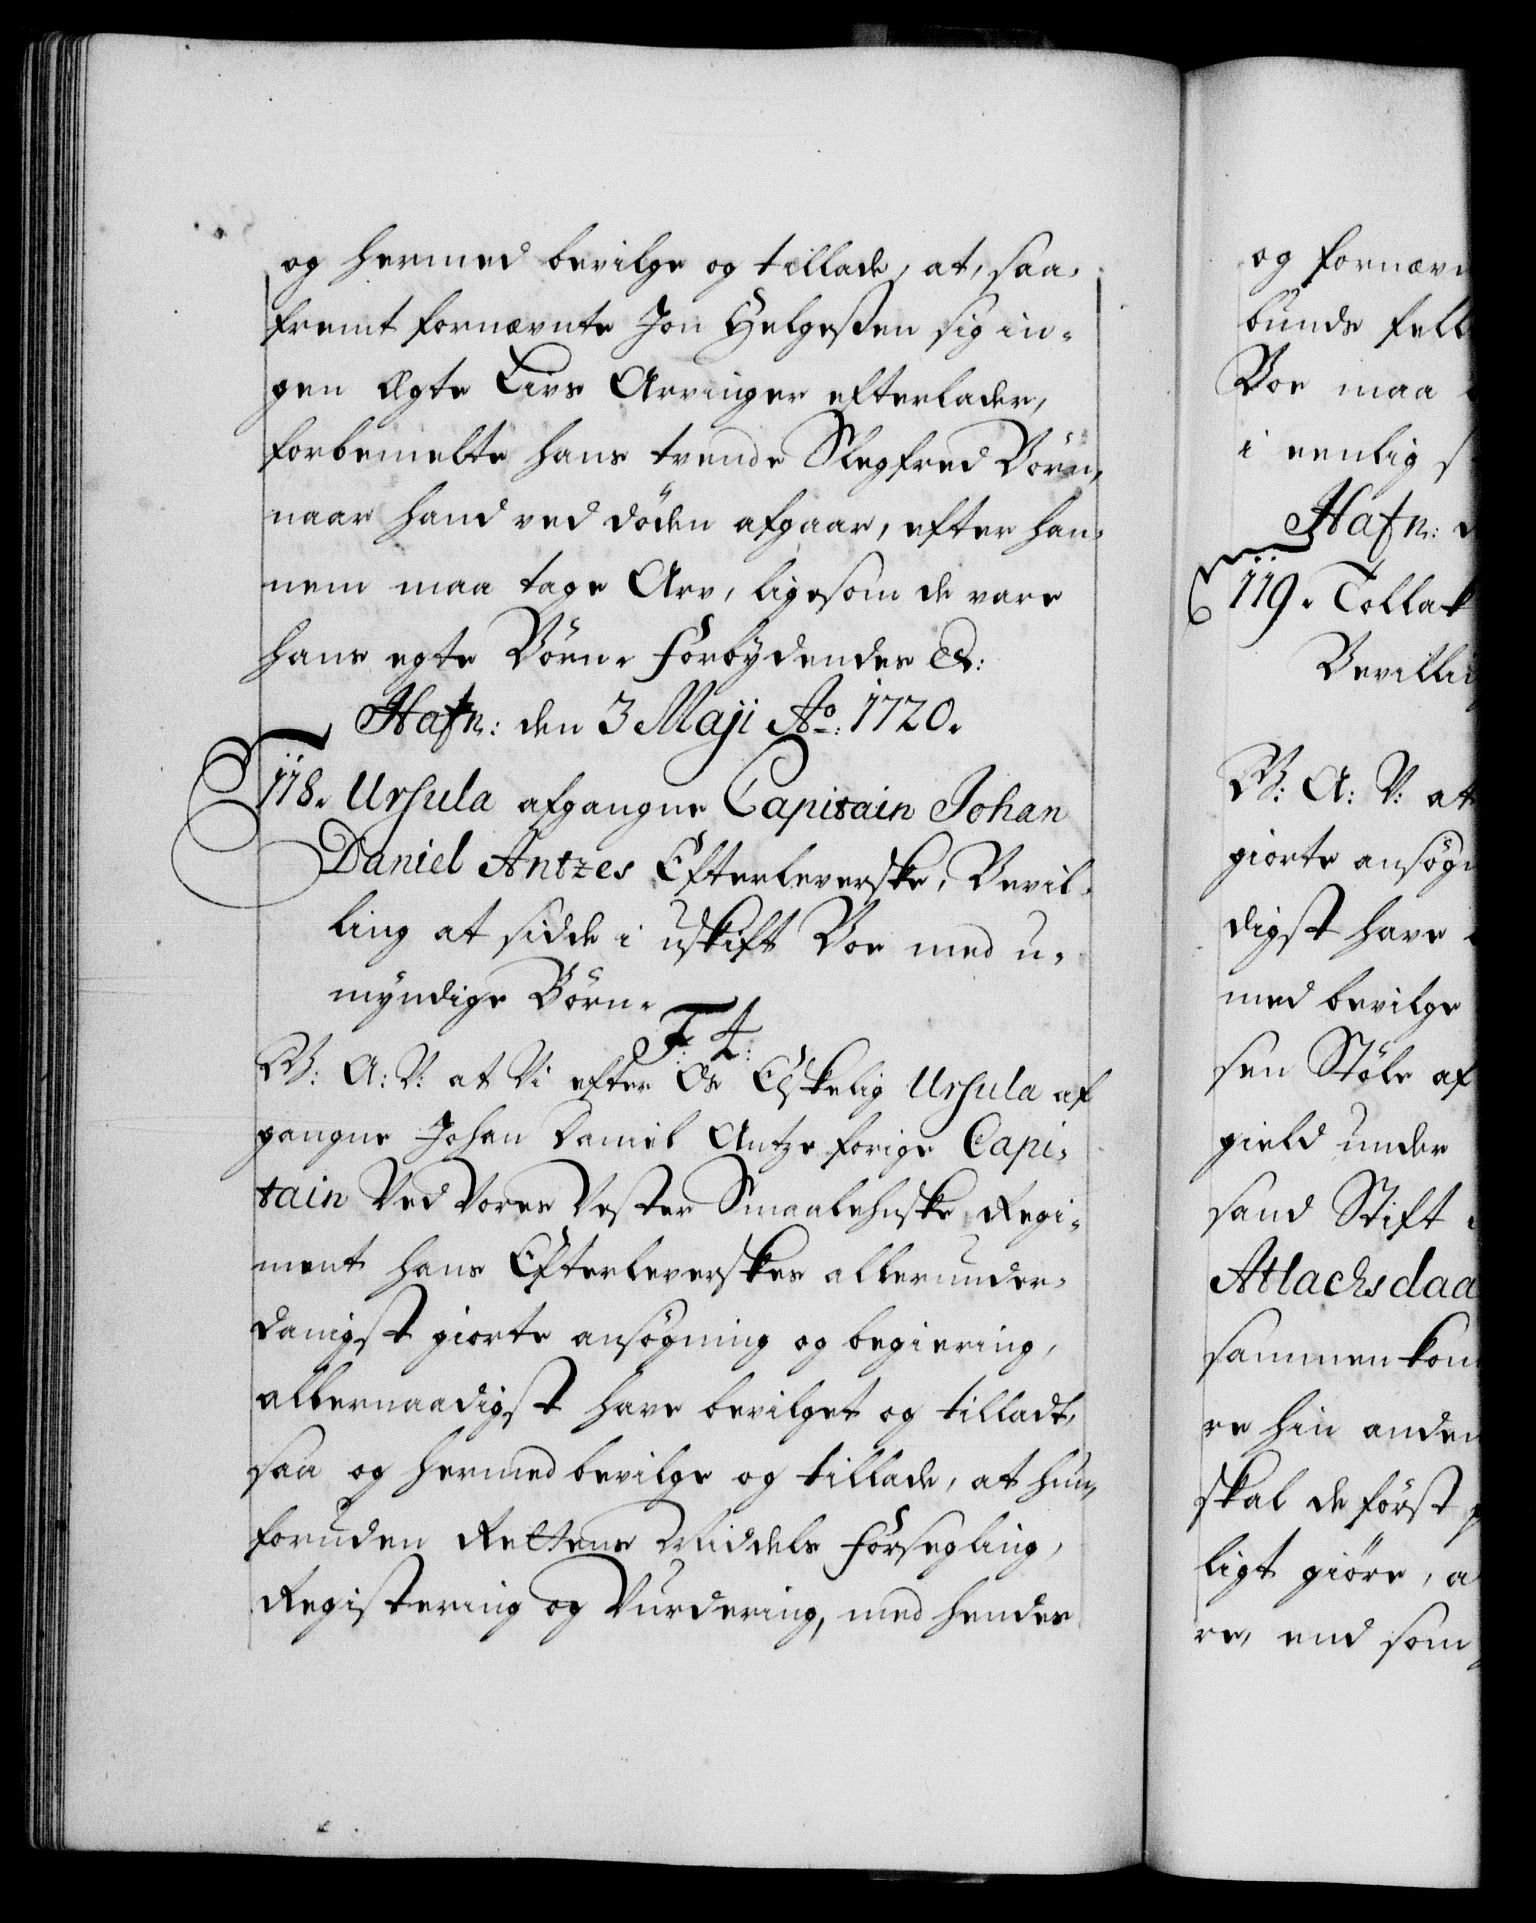 og hermed bevilge og tillade, at, saa-
fremt fornævnte Jon Helgeßen sig in-
gen Ægte Livs Arvinger efterlader,
forbemelte hans trende Slegfred Börn,
naar hand ved döden afgaar, efter han-
nem maa tage Arv, ligesom de vare
hans egte Börn. Forbydendes &:
Hafn: den 3 Maji Ao: 1720.
118. Ursula afgangne Capitain Johan
Daniel Antzes Efterleverske, Bevil-
ling at sidde i uskift Boe med u-
myndige Börn.
F: 4:
G: A: V: at Vi efter Os Elskelig Ursula af
gangne Johan Daniel Antze forige Capi-
tain Ved Vores Vester Smaalehnske Regi-
ment hans Efterleverskes allerunder-
danigst giorte ansögning og begiering,
allernaadigst have bevilget og tilladt,
saa og hermed bevilge og tillade, at hun,
foruden Rettens Middels Forsegling,
Registering og Vurdering, med hendes
og fornævn
bunds fell
Boe maa
i eenlig s
Hafn: d
119. Tollak
Bevilli
G: A: V: at
giorte ansögn
digst have
med bevilge
sen Stöle af
gield under
sand Stift
Atlachsdaa
sammen kom
re hin anden
skal de först
ligt giöre, a
re, end som